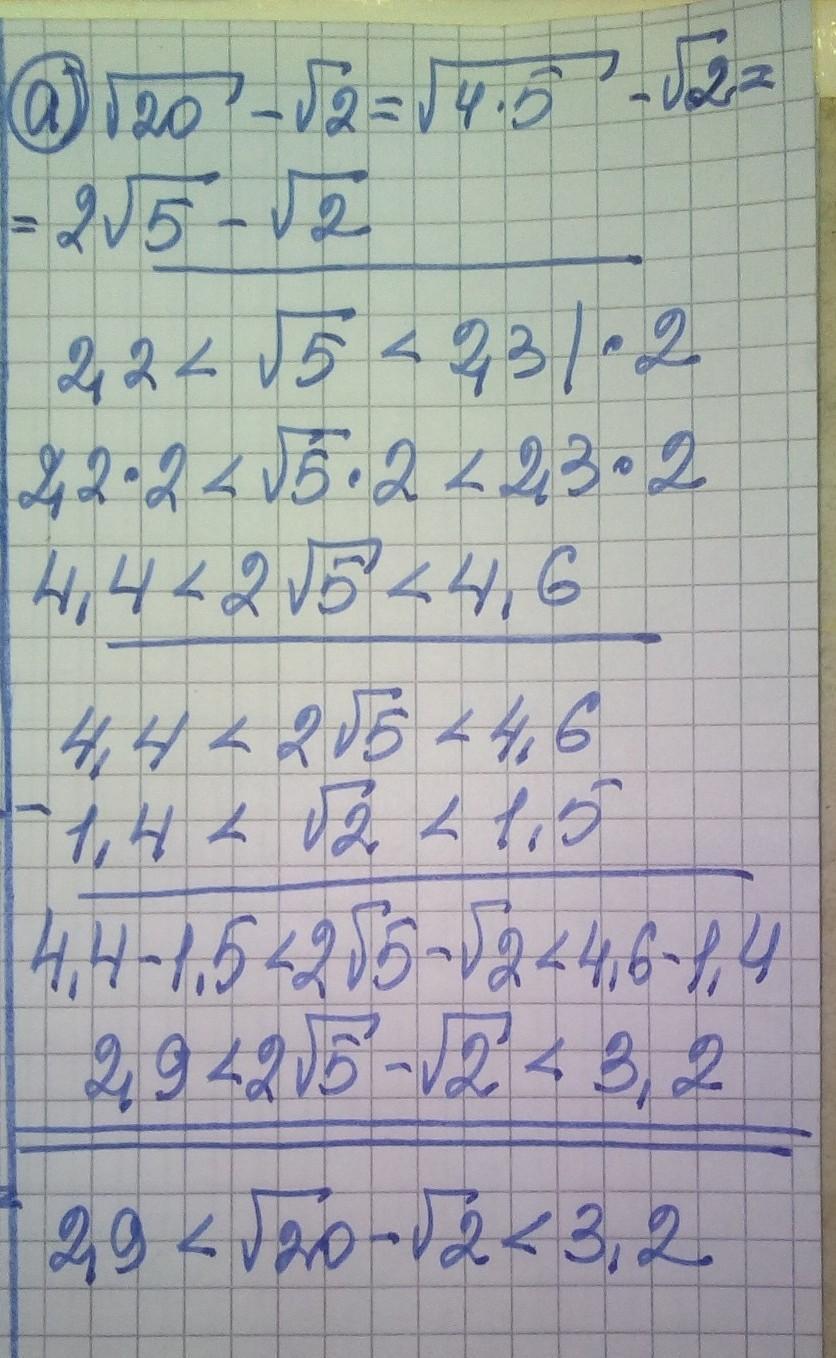 а) √20 - √2 = √4·5 - √2 =
= 2√5 - √2
2,2 < √5 < 2,3 | · 2
2,2 · 2 < √5 · 2 < 2,3 · 2
4,4 < 2√5 < 4,6
4,4 < 2√5 < 4,6
- 1,4 < √2 < 1,5
4,4 - 1,5 < 2√5 - √2 < 4,6 - 1,4
2,9 < 2√5 - √2 < 3,2
2,9 < √20 - √2 < 3,2